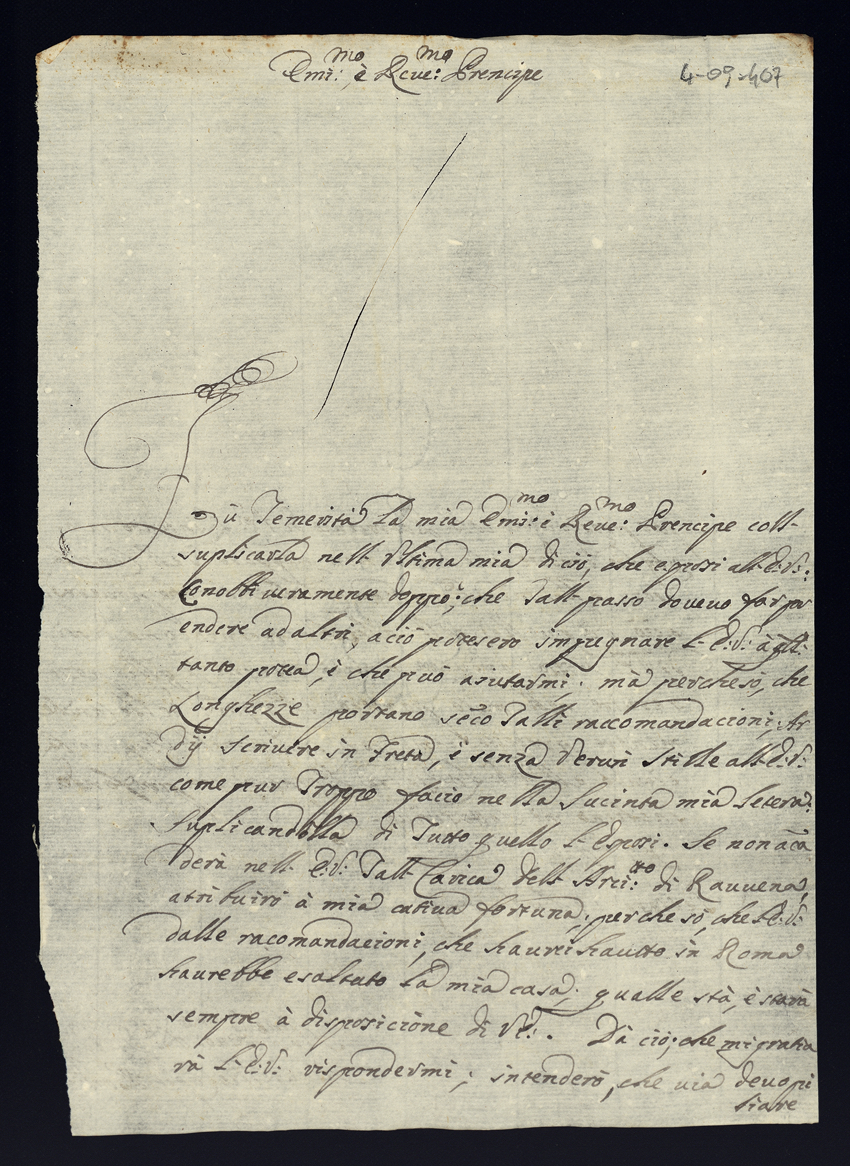 Emi:mo è Reve:mo Prencipe
4-09-407
Fù Temerità la mia Emi:mo i Reve:mo Prencipe coll-
suplicarla nell- Vltima mia di ciò, che esposi all-E:V:
Conobbi veramente doppò; che tall-passo dovevo far
endere ad altri, aciò potesero impugnare l-E:V: à
tanto potea, è che può aiutarmi. mà perche sò, che
Longhezze portano seco Talli raccomandacioni, Ar
dij scrivere in Freta, è senza Verun Stille all-E:V:
come pur Troppo facio nella Sucinta mia letera:
Suplicandolla di Tutto quello l-Esposi. Se non aca
derà nell- E:V: Tall-Carica dell- Arci: di Ravvena,
atribuirò à mia cativa fortuna; perche sò, che l-E:V:
dalle racomandacioni, che haurei hautto in Roma
haurebbe esaltato la mia casa; qualle stà, è starà
sempre à disposicione di V:E:. Dà ciò; che mi gratia
rà l-E:V: rispondermi; intenderò, che via devo pi
liare